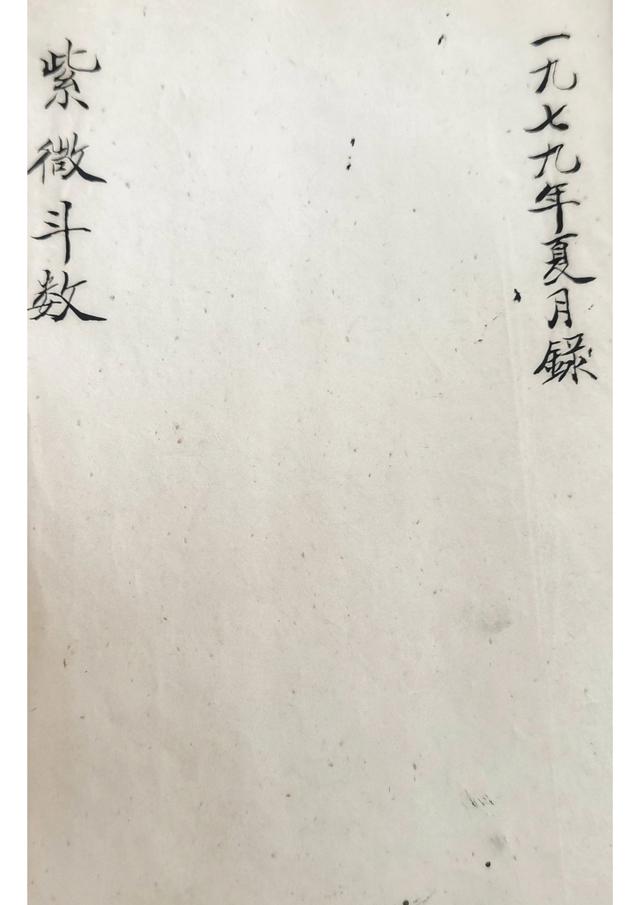 一九七九年夏月録
紫微斗数